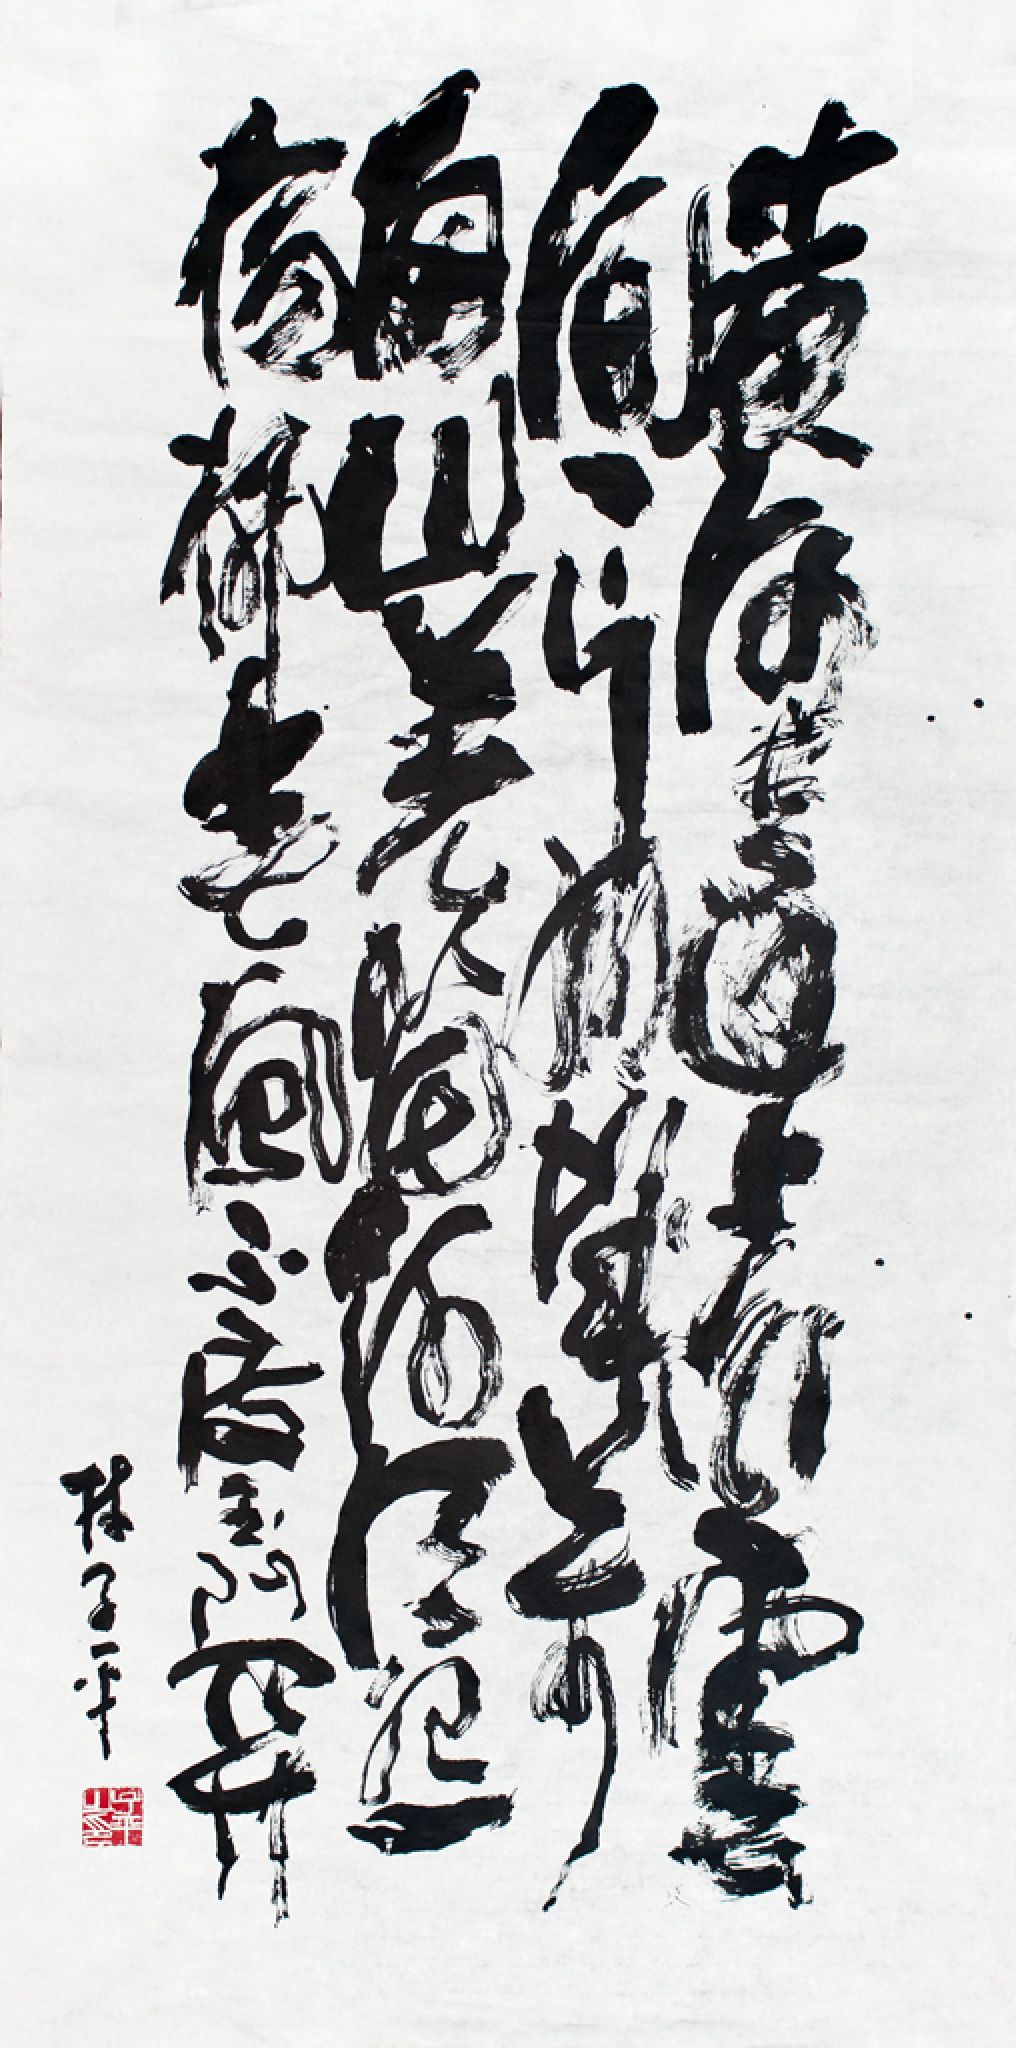 黄河遠上白雲
間一片孤城万仞
山羌笛何須怨
楊柳春風不度玉門関
子平